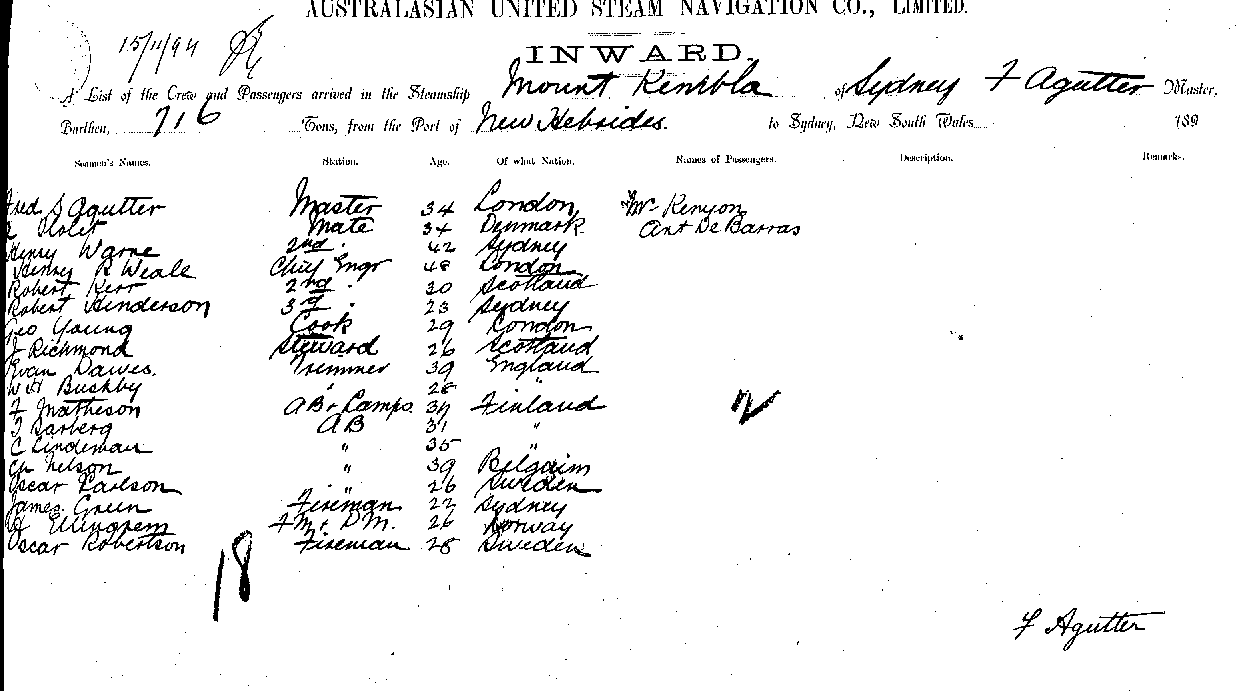 AUSTRALASIAN UNITED STEAM NAVIGATION CO., LIMITED.
15/11/94
INWARD.
A List of the Crew and Passengers arrived in the Steamship Mount Kembla of Sydney F Agutter Master,
Burthen, 716 Tons, from the Port of New Hebrides. to Sydney, New South Wales 189
Seamen's Names. Station. Age. Of what Nation. Names of Passengers. Description. Remarks.
Fred. S Agutter Master 34 London Mr Kenyon
Mate 34 Denmark Ant De Barras
Henry Warne 2nd " 42 Sydney
Henry R Weale Chief Engr 48 London
Robert Kerr 2nd " 30 Scotland
Robert Henderson 3rd " 23 Sydney
Geo Young Cook 29 London
J Richmond Steward 26 Scotland
Evan Dawes. Trimmer 39 England
W H Bushby " 28 "
F Matheson AB & Lamps 37 Finland
AB 31 "
C Lindeman " 35 "
Nelson " 39 Belgium
Oscar Carlson " 26 Sweden
James Green Fireman 22 Sydney
F.M. & D.M. 26 Norway
Oscar Robertson Fireman 28 Sweden
18
F Agutter